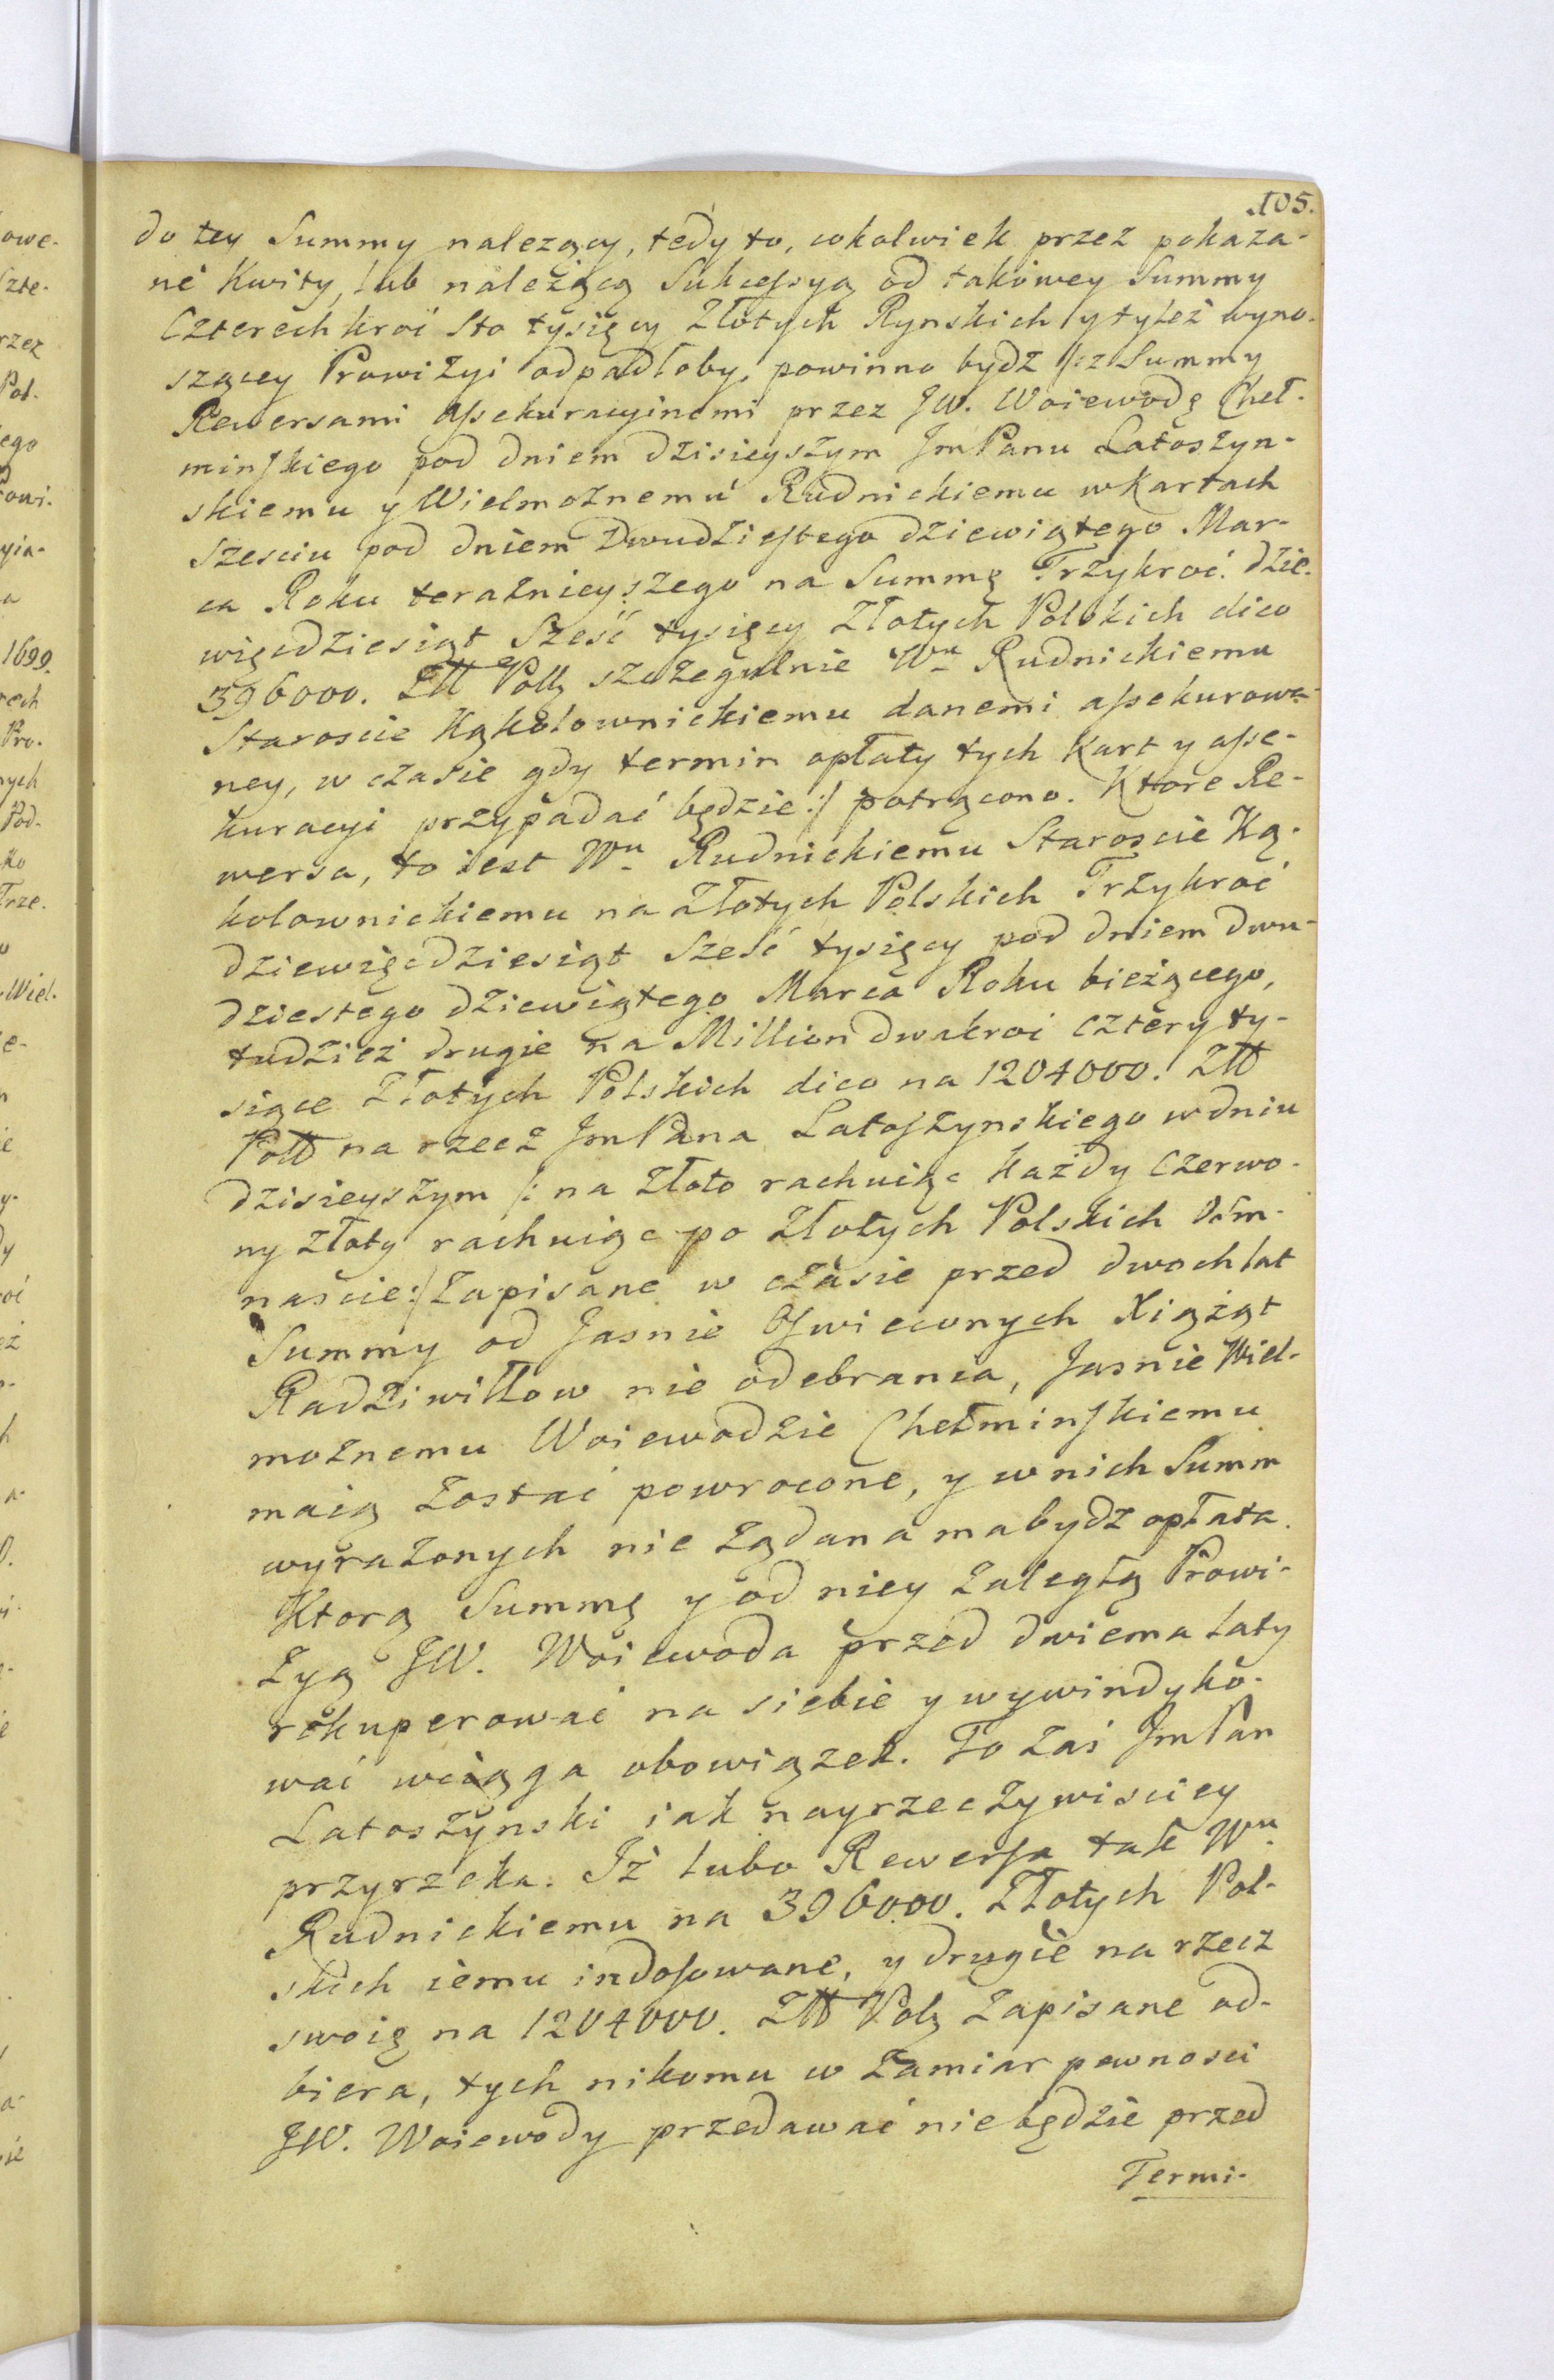 105.
do tey Summy nalezący, tedy to, cokolwiek przez pokaza-
né Kwity, lub należącą Sukcessyą od takowey Summy
Czterechkroć Sto tysięcy Złotych Rynskich y tyleż wyno-
szącey Prowizyi odpadłoby, powinno bydz /: z Summy
Rewersami assekuracyinemi przez JW. Woiewodę Cheł-
minskiego pod dniem dzisieyszym JmPanu Latoszyn-
skiemu y Wielmożnemu Rudnickiemu w Kartach
Szesciu pod dniem Dwudziestego dziewiątego Mar-
ca Roku teraznieyszego na Summę Trzykroć dzie-
więćdziesiąt Sześć tysięcy Złotych Polskich dico
396000. Złł Pollz szczegulnie Wu Rudnickiemu
Staroscie Kąkolownickiemu danemi assekurowa-
ney, w czasie gdy termin opłaty tych Kart y asse-
kuracyi przypadać będzie :/ potrącono. Ktore Re-
wersa, to iest Wu Rudnickiemu Staroscie Ką-
kolownickiemu na Złotych Polskich Trzykroć
dziewięcdziesiąt Sześć tysięcy pod dniem dwu-
dziestego dziewiątego Marca Roku bieżącego,
tudzież drugie na Million dwakroć cztery ty-
siące Złotych Polskich dico na 1204000. Złł
Poll na rzecz JmPana Latoszynskiego w dniu
dzisieyszym /: na złoto rachuiąc każdy Czerwo-
ny złoty rachuiąc po Złotych Polskich Ośm-
naście :/ zapisane w czasie przed dwoch lat
Summy od Jasnie Oswieconych Xiążąt
Radziwiłłow nie odebrania, Jasnie Wiel-
możnemu Woiewodzie Chełminskiemu
maią zostać powrocone, y w nich Summ
wyrażonych nie żądana ma bydz opłata.
Ktorą Summę y od niey zaległą Prowi-
zyą JW. Woiewoda przed dwiema laty
rekuperować na siebie y wywindyko-
wać wciąga obowiązek. To zaś JmPan
Latoszynski iak nayrzeczywisciey
przyrzeka. Iż lubo Rewersa tak Wu
Rudnickiemu na 396000. Złotych Pol-
skich iemu indosowane, y drugie na rzecz
swoię na 1204000. Złł Polz zapisane od-
biera, tych nikomu w zamiar pewnosci
JW. Woiewody przedawać nie będzie przed
Termi-